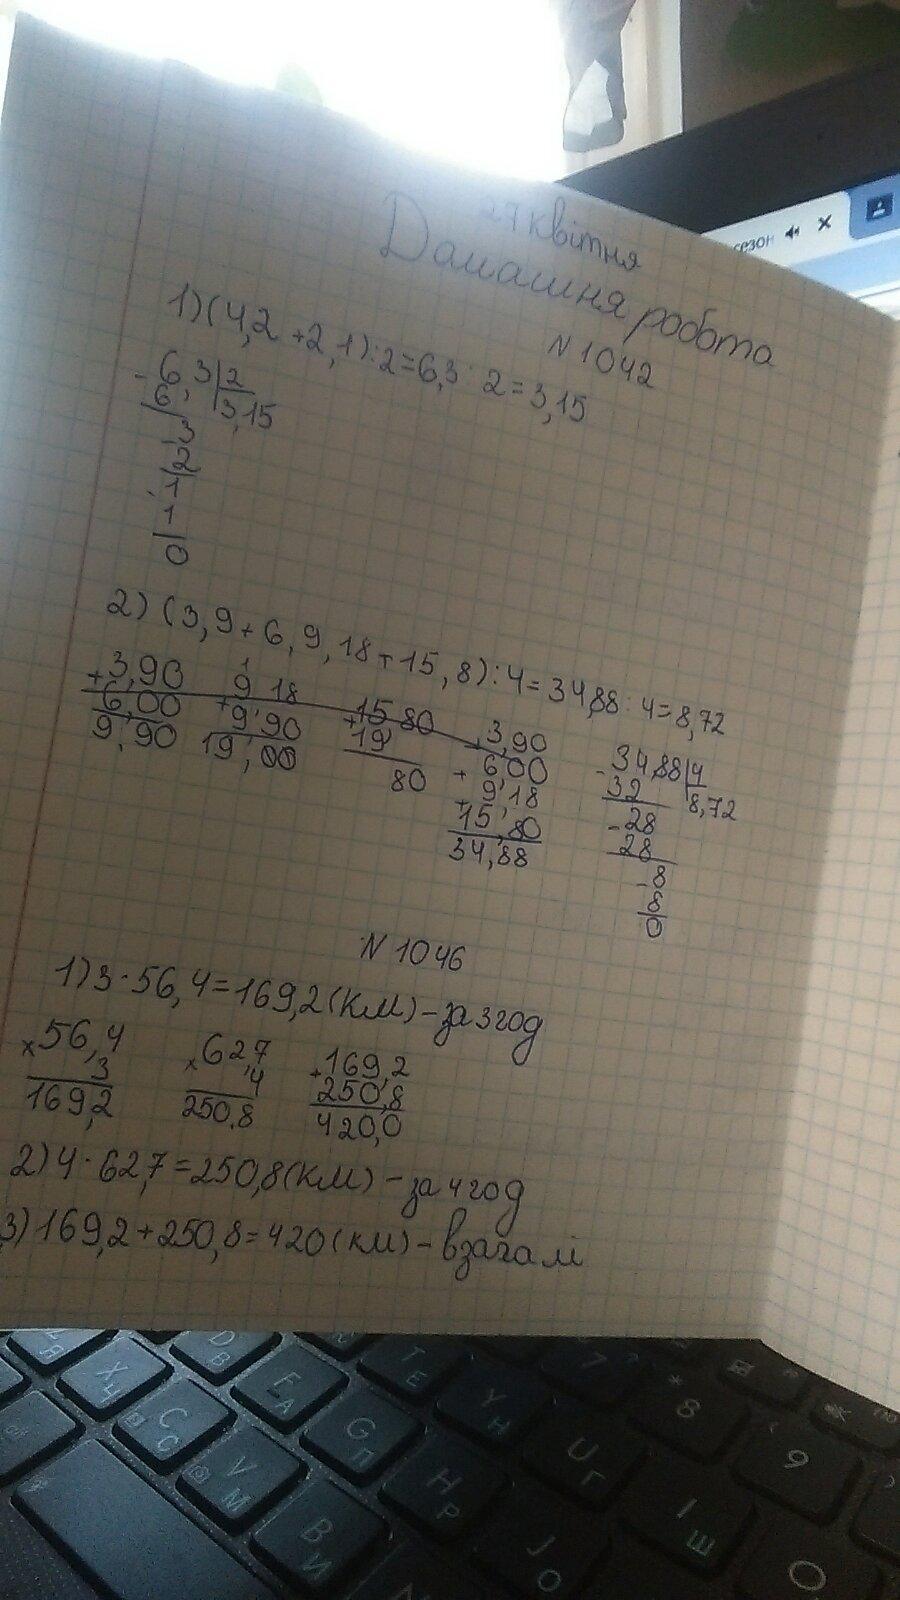 27 квітня
Дамашня робота
N 1042
1) (4,2 + 2,1) : 2 = 6,3 : 2 = 3,15
- 6,3 | 2
6 3,15
- 3
2
- 1
1
0
2) (3,9 + 6, 9, 18 + 15, 8) : 4 = 34,88 : 4 = 8,72
+ 3,90
6,00
9,90
1
9 18
+ 9,90
19,00
15 80
+ 19
80
3,90
+ 6,00
+ 9,18
15,80
34,88
- 34,88 | 4
32 8,72
- 28
28
- 8
8
0
N 1046
1) 3 · 56,4 = 169,2 (км) – за 3 год
× 56,4
3
169,2
× 62,7
4
250,8
+ 169,2
250,8
420,0
2) 4 · 62,7 = 250,8 (км) – за 4 год
3) 169,2 + 250,8 = 420 (км) – взагалі
сезон